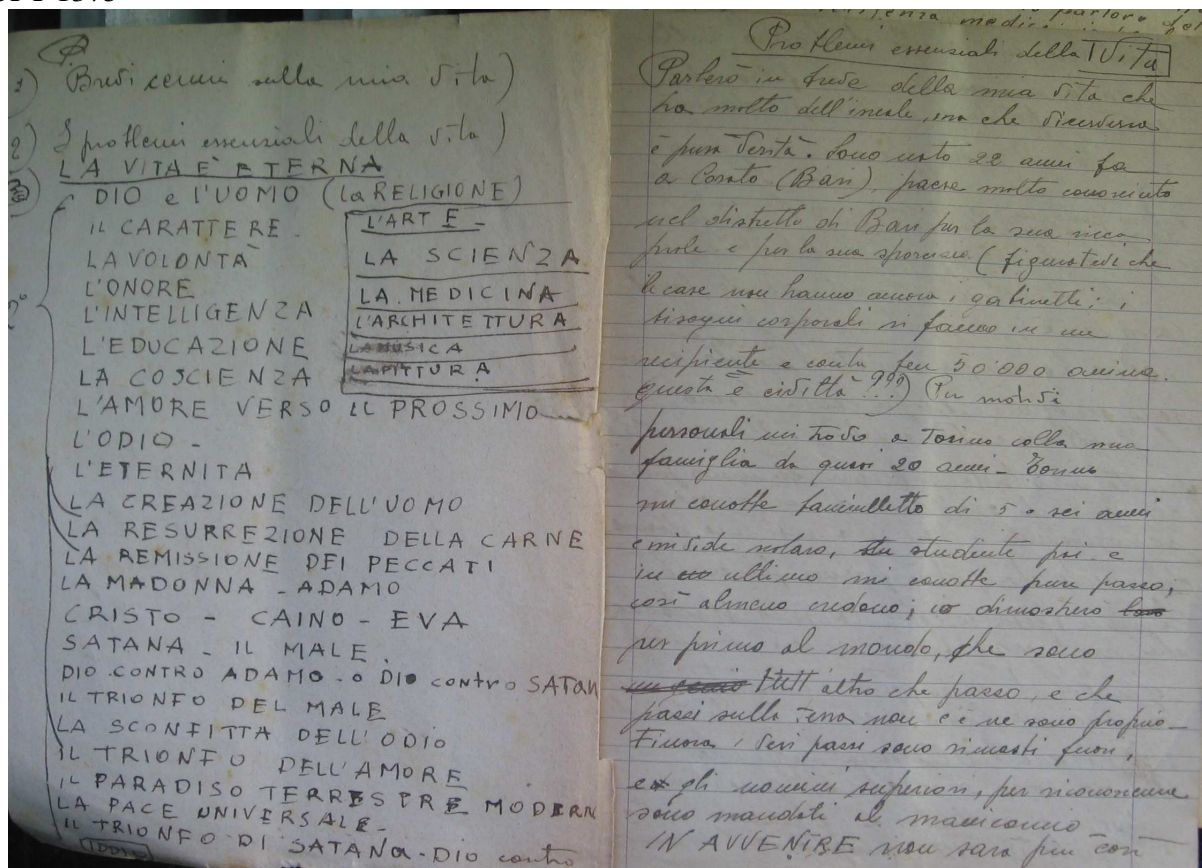 1) Brevi cenni sulla mia vita)
2) I problemi essenziali della vita)
LA VITA È ETERNA
3) DIO e L'UOMO (la RELIGIONE)
IL CARATTERE -
LA VOLONTÀ
L'ONORE
L'INTELLIGENZA
L'EDUCAZIONE
LA COSCIENZA
L'ARTE -
LA SCIENZA
LA MEDICINA
L'ARCHITETTURA
LA MUSICA
LA PITTURA
L'AMORE VERSO IL PROSSIMO
L'ODIO -
L'ETERNITA
LA CREAZIONE DELL'UOMO
LA RESURREZIONE DELLA CARNE
LA REMISSIONE DEI PECCATI
LA MADONNA - ADAMO
CRISTO - CAINO - EVA
SATANA - IL MALE.
DIO CONTRO ADAMO - o DIO contro SATAN
IL TRIONFO DEL MALE
LA SCONFITTA DELL'ODIO
IL TRIONFO DELL'AMORE
IL PARADISO TERRESTRE MODERN
LA PACE UNIVERSALE -
IL TRIONFO DI SATANA - DIO contro
IDDIO
Problemi essenziali della Vita
Parlerò in breve della mia vita che
ha molto dell'ineale, ma che viceversa
è pura verità. Sono nato 22 anni fa
a Corato (Bari), paese molto conosciuto
nel distretto di Bari per la sua ricca
prole e per la sua sporcizia (figuratevi che
le case non hanno ancora i gabinetti; i
bisogni corporali si fanno in un
recipiente e conta ben 50'000 anime.
questa è civiltà???) Per motivi
personali mi trovo a Torino colla mia
famiglia da quasi 20 anni - Torino
mi conobbe fanciulletto di 5 o sei anni
e mi vide scolaro, studente poi e
in ultimo mi conobbe pure pazzo,
così almeno credono; io dimostrerò
per primo al mondo, che sono
un genio tutt'altro che pazzo, e che
pazzi sulla Terra non c'è ne sono proprio -
Finora i veri pazzi sono rimasti fuori,
e gli uomini superiori, per riconoscenza
sono mandati al manicomio
IN AVVENIRE non sarà più così